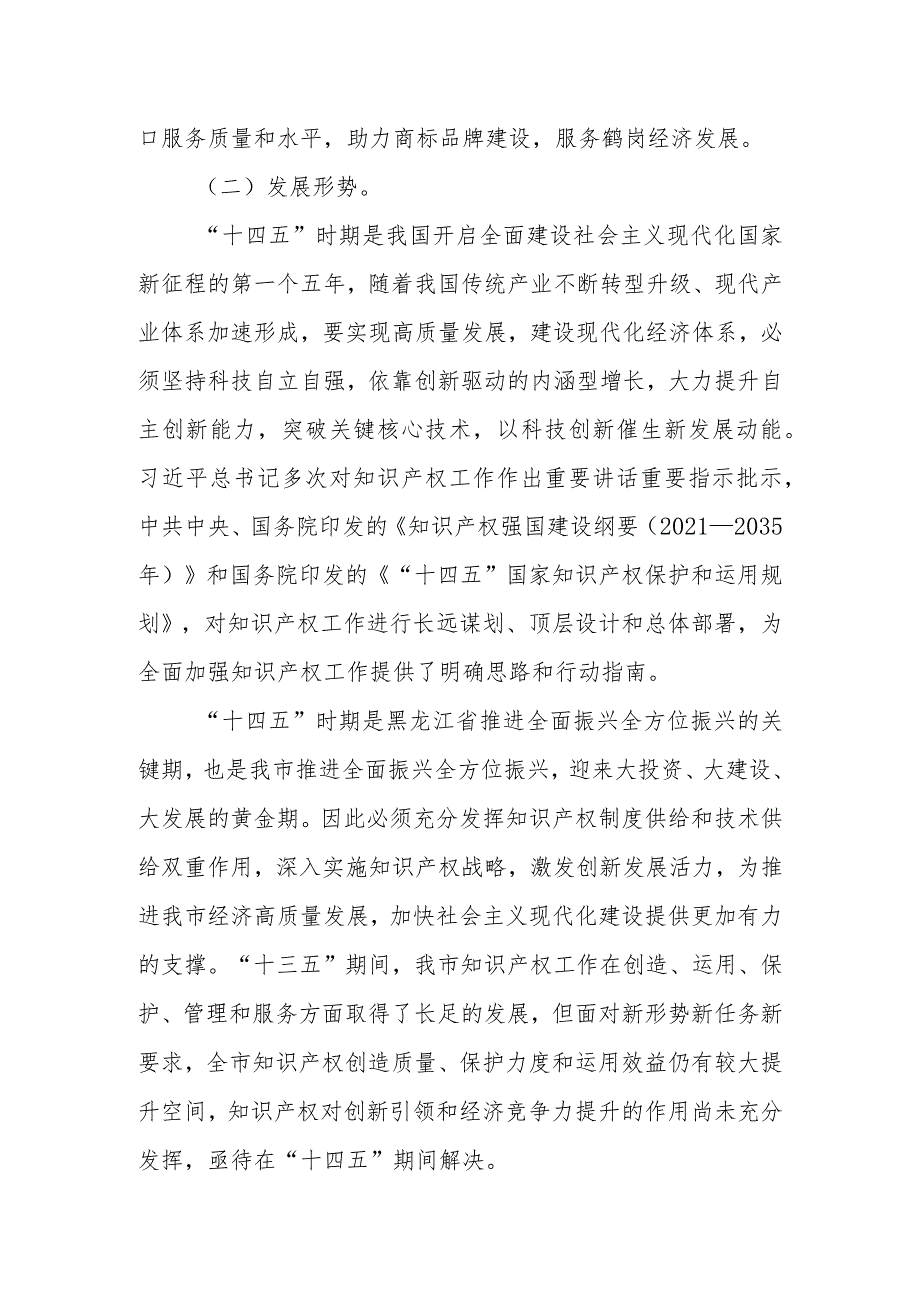 口服务质量和水平，助力商标品牌建设，服务鹤岗经济发展。
（二）发展形势。
“十四五”时期是我国开启全面建设社会主义现代化国家
新征程的第一个五年，随着我国传统产业不断转型升级、现代产
业体系加速形成，要实现高质量发展，建设现代化经济体系，必
须坚持科技自立自强，依靠创新驱动的内涵型增长，大力提升自
主创新能力，突破关键核心技术，以科技创新催生新发展动能。
习近平总书记多次对知识产权工作作出重要讲话重要指示批示，
中共中央、国务院印发的《知识产权强国建设纲要（2021—2035
年）》和国务院印发的《“十四五”国家知识产权保护和运用规
划》，对知识产权工作进行长远谋划、顶层设计和总体部署，为
全面加强知识产权工作提供了明确思路和行动指南。
“十四五”时期是黑龙江省推进全面振兴全方位振兴的关
键期，也是我市推进全面振兴全方位振兴，迎来大投资、大建设、
大发展的黄金期。因此必须充分发挥知识产权制度供给和技术供
给双重作用，深入实施知识产权战略，激发创新发展活力，为推
进我市经济高质量发展，加快社会主义现代化建设提供更加有力
的支撑。“十三五”期间，我市知识产权工作在创造、运用、保
护、管理和服务方面取得了长足的发展，但面对新形势新任务新
要求，全市知识产权创造质量、保护力度和运用效益仍有较大提
升空间，知识产权对创新引领和经济竞争力提升的作用尚未充分
发挥，亟待在“十四五”期间解决。